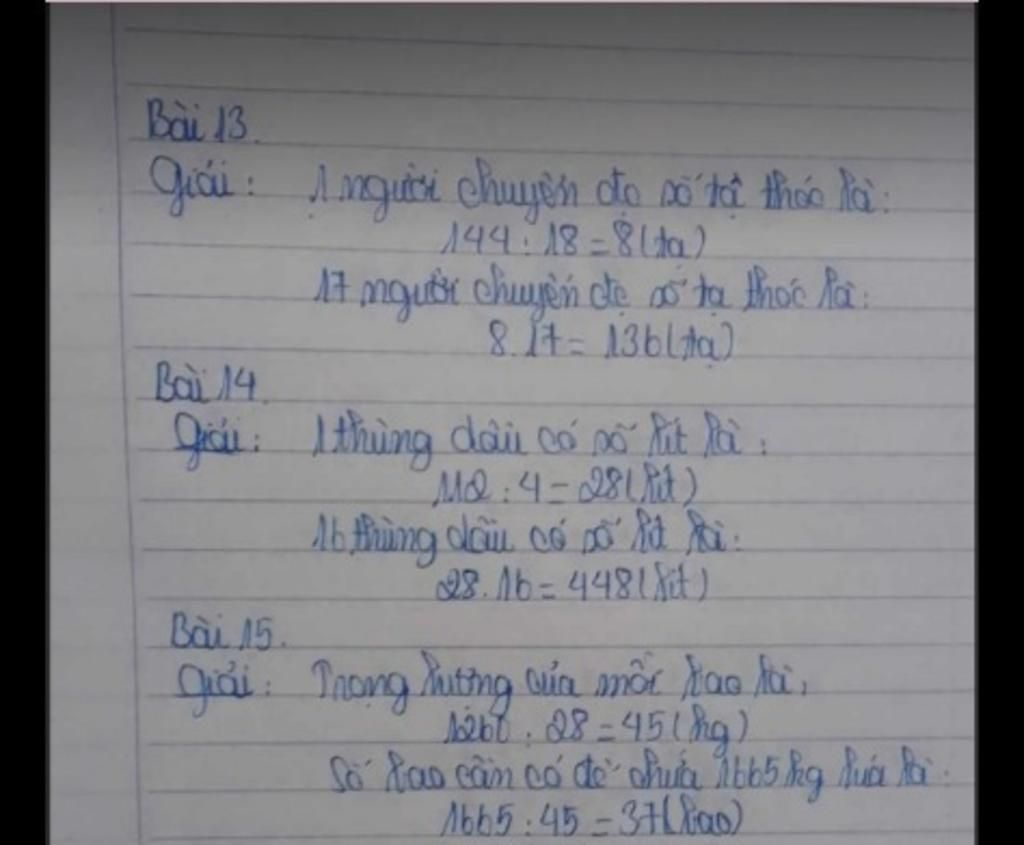 Bài 13.
Giải: 1 người chuyển đc số tạ thóc là:
144 : 18 = 8 (tạ)
17 người chuyển đc số tạ thóc là:
8.17 = 136 (tạ)
Bài 14.
Giải: 1 thùng dầu có số lít là:
112 : 4 = 28 (lít)
16 thùng dầu có số lít là:
28.16 = 448 (lít)
Bài 15.
Giải: Trọng lượng của mỗi bao là:
1260 : 28 = 45 (kg)
Số bao cần có để chứa 1665 kg lúa là:
1665 : 45 = 37 (bao)